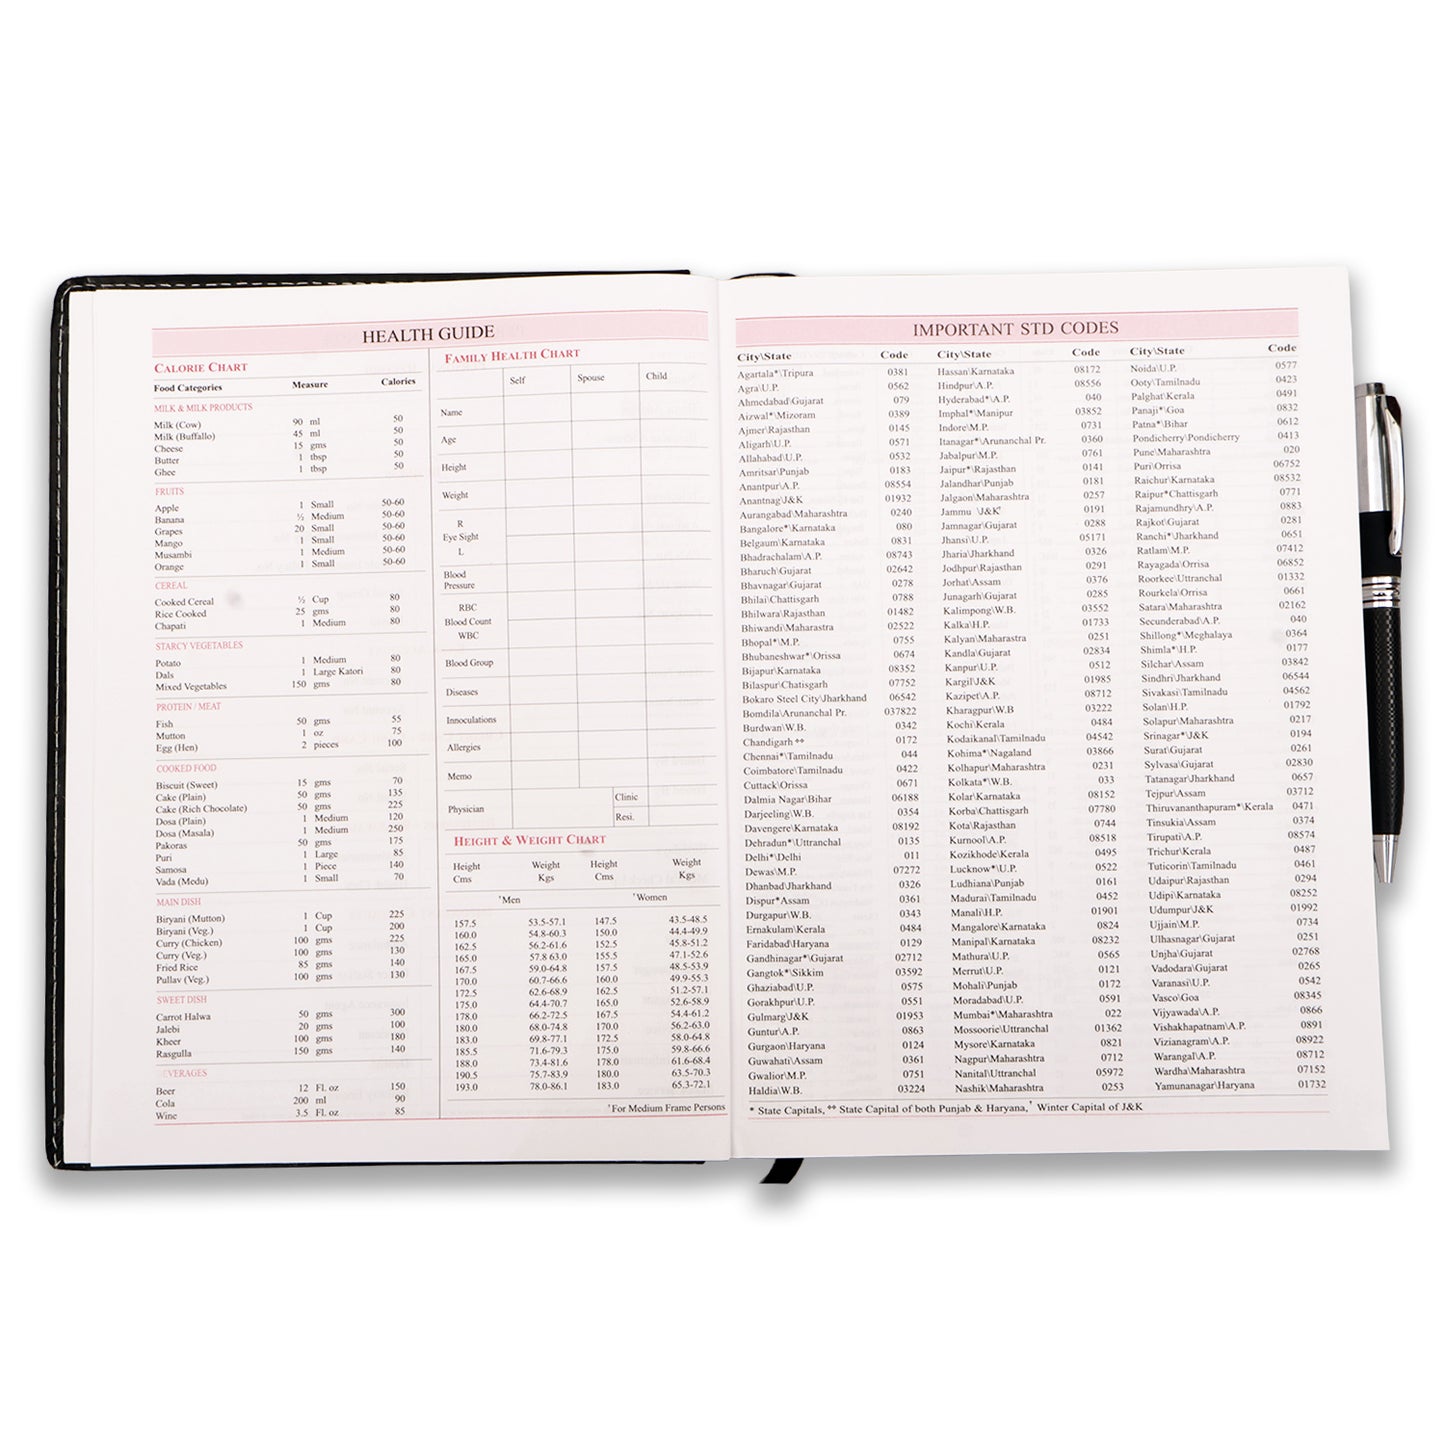 HEALTH GUIDE
CALORIE CHART
Food Categories Measure Calories
MILK & MILK PRODUCTS
Milk (Cow) 90 ml 50
Milk (Buffallo) 45 ml 50
Cheese 15 gms 50
Butter 1 tbsp 50
Ghee 1 tbsp 50
FRUITS
Apple 1 Small 50-60
Banana ½ Medium 50-60
Grapes 20 Small 50-60
Mango 1 Small 50-60
Musambi 1 Medium 50-60
Orange 1 Small 50-60
CEREAL
Cooked Cereal ½ Cup 80
Rice Cooked 25 gms 80
Chapati 1 Medium 80
STARCY VEGETABLES
Potato 1 Medium 80
Dals 1 Large Katori 80
Mixed Vegetables 150 gms 80
PROTEIN / MEAT
Fish 50 gms 55
Mutton 1 oz 75
Egg (Hen) 2 pieces 100
COOKED FOOD
Biscuit (Sweet) 15 gms 70
Cake (Plain) 50 gms 135
Cake (Rich Chocolate) 50 gms 225
Dosa (Plain) 1 Medium 120
Dosa (Masala) 1 Medium 250
Pakoras 50 gms 175
Puri 1 Large 85
Samosa 1 Piece 140
Vada (Medu) 1 Small 70
MAIN DISH
Biryani (Mutton) 1 Cup 225
Biryani (Veg.) 1 Cup 200
Curry (Chicken) 100 gms 225
Curry (Veg.) 100 gms 130
Fried Rice 85 gms 140
Pullav (Veg.) 100 gms 130
SWEET DISH
Carrot Halwa 50 gms 300
Jalebi 20 gms 100
Kheer 100 gms 180
Rasgulla 150 gms 140
EVERAGES
Beer 12 Fl. oz 150
Cola 200 ml 90
Wine 3.5 Fl. oz 85
FAMILY HEALTH CHART
Self Spouse Child
Name
Age
Height
Weight
R
Eye Sight
L
Blood
Pressure
RBC
Blood Count
WBC
Blood Group
Diseases
Innoculations
Allergies
Memo
Physician Clinic
Resi.
HEIGHT & WEIGHT CHART
Height Weight Height Weight
Cms Kgs Cms Kgs
'Men 'Women
157.5 53.5-57.1 147.5 43.5-48.5
160.0 54.8-60.3 150.0 44.4-49.9
162.5 56.2-61.6 152.5 45.8-51.2
165.0 57.8 63.0 155.5 47.1-52.6
167.5 59.0-64.8 157.5 48.5-53.9
170.0 60.7-66.6 160.0 49.9-55.3
172.5 62.6-68.9 162.5 51.2-57.1
175.0 64.4-70.7 165.0 52.6-58.9
178.0 66.2-72.5 167.5 54.4-61.2
180.0 68.0-74.8 170.0 56.2-63.0
183.0 69.8-77.1 172.5 58.0-64.8
185.5 71.6-79.3 175.0 59.8-66.6
188.0 73.4-81.6 178.0 61.6-68.4
190.5 75.7-83.9 180.0 63.5-70.3
193.0 78.0-86.1 183.0 65.3-72.1
'For Medium Frame Persons
IMPORTANT STD CODES
City\State Code City\State Code City\State Code
Agartala*\Tripura 0381 Hassan\Karnataka 08172 Noida\U.P. 0577
Agra\U.P. 0562 Hindpur\A.P. 08556 Ooty\Tamilnadu 0423
Ahmedabad\Gujarat 079 Hyderabad*\A.P. 040 Palghat\Kerala 0491
Aizwal*\Mizoram 0389 Imphal*\Manipur 03852 Panaji*\Goa 0832
Ajmer\Rajasthan 0145 Indore\M.P. 0731 Patna*\Bihar 0612
Aligarh\U.P. 0571 Itanagar*\Arunanchal Pr. 0360 Pondicherry\Pondicherry 0413
Allahabad\U.P. 0532 Jabalpur\M.P. 0761 Pune\Maharashtra 020
Amritsar\Punjab 0183 Jaipur*\Rajasthan 0141 Puri\Orrisa 06752
Anantpur\A.P. 08554 Jalandhar\Punjab 0181 Raichur\Karnataka 08532
Anantnag\J&K 01932 Jalgaon\Maharashtra 0257 Raipur*\Chattisgarh 0771
Aurangabad\Maharashtra 0240 Jammu \J&K' 0191 Rajamundhry\A.P. 0883
Bangalore*\Karnataka 080 Jamnagar\Gujarat 0288 Rajkot\Gujarat 0281
Belgaum\Karnataka 0831 Jhansi\U.P. 05171 Ranchi*\Jharkhand 0651
Bhadrachalam\A.P. 08743 Jharia\Jharkhand 0326 Ratlam\M.P. 07412
Bharuch\Gujarat 02642 Jodhpur\Rajasthan 0291 Rayagada\Orrisa 06852
Bhavnagar\Gujarat 0278 Jorhat\Assam 0376 Roorkee\Uttranchal 01332
Bhilai\Chattisgarh 0788 Junagarh\Gujarat 0285 Rourkela\Orrisa 0661
Bhilwara\Rajasthan 01482 Kalimpong\W.B. 03552 Satara\Maharashtra 02162
Bhiwandi\Maharastra 02522 Kalka\H.P. 01733 Secunderabad\A.P. 040
Bhopal*\M.P. 0755 Kalyan\Maharastra 0251 Shillong*\Meghalaya 0364
Bhubaneshwar*\Orissa 0674 Kandla\Gujarat 02834 Shimla*\H.P. 0177
Bijapur\Karnataka 08352 Kanpur\U.P. 0512 Silchar\Assam 03842
Bilaspur\Chatisgarh 07752 Kargil\J&K 01985 Sindhri\Jharkhand 06544
Bokaro Steel City\Jharkhand 06542 Kazipet\A.P. 08712 Sivakasi\Tamilnadu 04562
Bomdila\Arunanchal Pr. 037822 Kharagpur\W.B 03222 Solan\H.P. 01792
Burdwan\W.B. 0342 Kochi\Kerala 0484 Solapur\Maharashtra 0217
Chandigarh ** 0172 Kodaikanal\Tamilnadu 04542 Srinagar*\J&K 0194
Chennai*\Tamilnadu 044 Kohima*\Nagaland 03866 Surat\Gujarat 0261
Coimbatore\Tamilnadu 0422 Kolhapur\Maharashtra 0231 Sylvasa\Gujarat 02830
Cuttack\Orissa 0671 Kolkata*\W.B. 033 Tatanagar\Jharkhand 0657
Dalmia Nagar\Bihar 06188 Kolar\Karnataka 08152 Tejpur\Assam 03712
Darjeeling\W.B. 0354 Korba\Chattisgarh 07780 Thiruvananthapuram*\Kerala 0471
Davengere\Karnataka 08192 Kota\Rajasthan 0744 Tinsukia\Assam 0374
Dehradun*\Uttranchal 0135 Kurnool\A.P. 08518 Tirupati\A.P. 08574
Delhi*\Delhi 011 Kozikhode\Kerala 0495 Trichur\Kerala 0487
Dewas\M.P. 07272 Lucknow*\U.P. 0522 Tuticorin\Tamilnadu 0461
Dhanbad\Jharkhand 0326 Ludhiana\Punjab 0161 Udaipur\Rajasthan 0294
Dispur*\Assam 0361 Madurai\Tamilnadu 0452 Udipi\Karnataka 08252
Durgapur\W.B. 0343 Manali\H.P. 01901 Udumpur\J&K 01992
Ernakulam\Kerala 0484 Mangalore\Karnataka 0824 Ujjain\M.P. 0734
Faridabad\Haryana 0129 Manipal\Karnataka 08232 Ulhasnagar\Gujarat 0251
Gandhinagar*\Gujarat 02712 Mathura\U.P. 0565 Unjha\Gujarat 02768
Gangtok*\Sikkim 03592 Merrut\U.P. 0121 Vadodara\Gujarat 0265
Ghaziabad\U.P. 0575 Mohali\Punjab 0172 Varanasi\U.P. 0542
Gorakhpur\U.P. 0551 Moradabad\U.P. 0591 Vasco\Goa 08345
Gulmarg\J&K 01953 Mumbai*\Maharashtra 022 Vijyawada\A.P. 0866
Guntur\A.P. 0863 Mossoorie\Uttranchal 01362 Vishakhapatnam\A.P. 0891
Gurgaon\Haryana 0124 Mysore\Karnataka 0821 Vizianagram\A.P. 08922
Guwahati\Assam 0361 Nagpur\Maharashtra 0712 Warangal\A.P. 08712
Gwalior\M.P. 0751 Nanital\Uttranchal 05972 Wardha\Maharashtra 07152
Haldia\W.B. 03224 Nashik\Maharashtra 0253 Yamunanagar\Haryana 01732
* State Capitals, ** State Capital of both Punjab & Haryana,' Winter Capital of J&K